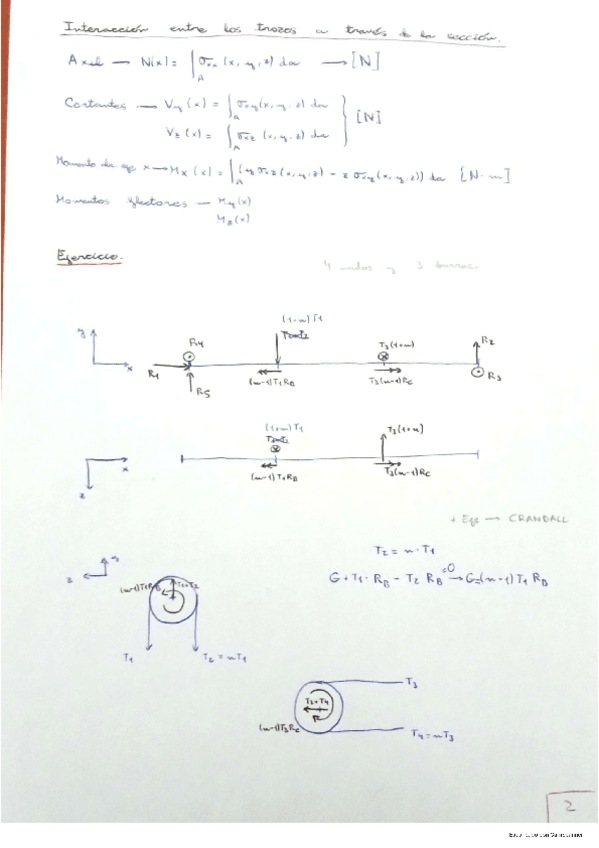 Interacción entre los trozos a través de la sección.
Axil — N(x) = ∫A σxx (x, y, z) da → [N]
Cortantes — Vy (x) = ∫A σxy (x, y, z) da
Vz (x) = ∫A σxz (x, y, z) da } [N]
Momento de eje x → Mx (x) = ∫A (y σxz (x, y, z) - z σxy (x, y, z)) da [N·m]
Momentos flectores — My (x)
Mz (x)
Ejercicio.
4 nudos y 3 barras.
(1+n) T1
y
R4
T3(1+n)
R2
x
R1
R5
(n-1)T1RB
T3(n-1)RC
R3
(1+n)T1
T3(1+n)
x
z
(n-1)T1RB
T3(n-1)RC
+ Eje → CRANDALL
T2 = n·T1
G + T1·RB - T2 RB =0 → G=(n-1) T1 RB
y
z
(n-1)T1RB
T1+T2
T1
T2 = nT1
T3
T3+T4
(n-1)T3RC
T4 = nT3
2